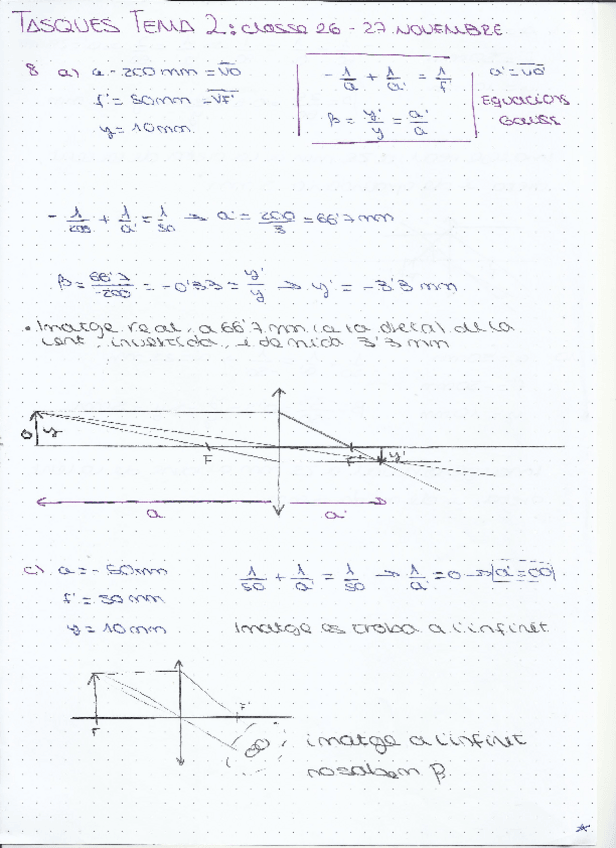 TASQUES TEMA 2: classe 26 - 27 NOVEMBRE
8 a) a = -200 mm = VO
f' = 50 mm = VF'
y = 10 mm
- 1/a + 1/a' = 1/f'
β = y'/y = a'/a
a' = VO'
EQUACIONS
GAUSS
- 1/-200 + 1/a' = 1/50 → a' = 200/3 = 66'7 mm
β = 66'7/-200 = -0'33 = y'/y → y' = -3'3 mm
• Imatge real, a 66'7 mm (a la dreta) de la
lent, invertida, i de mida 3'3 mm
O y F F' y'
a a'
c) a = -50 mm
f' = 50 mm
y = 10 mm
1/50 + 1/a' = 1/50 → 1/a' = 0 → a' = ∞
Imatge es troba a l'infinit
F F'
∞
imatge a l'infinit
no sabem β